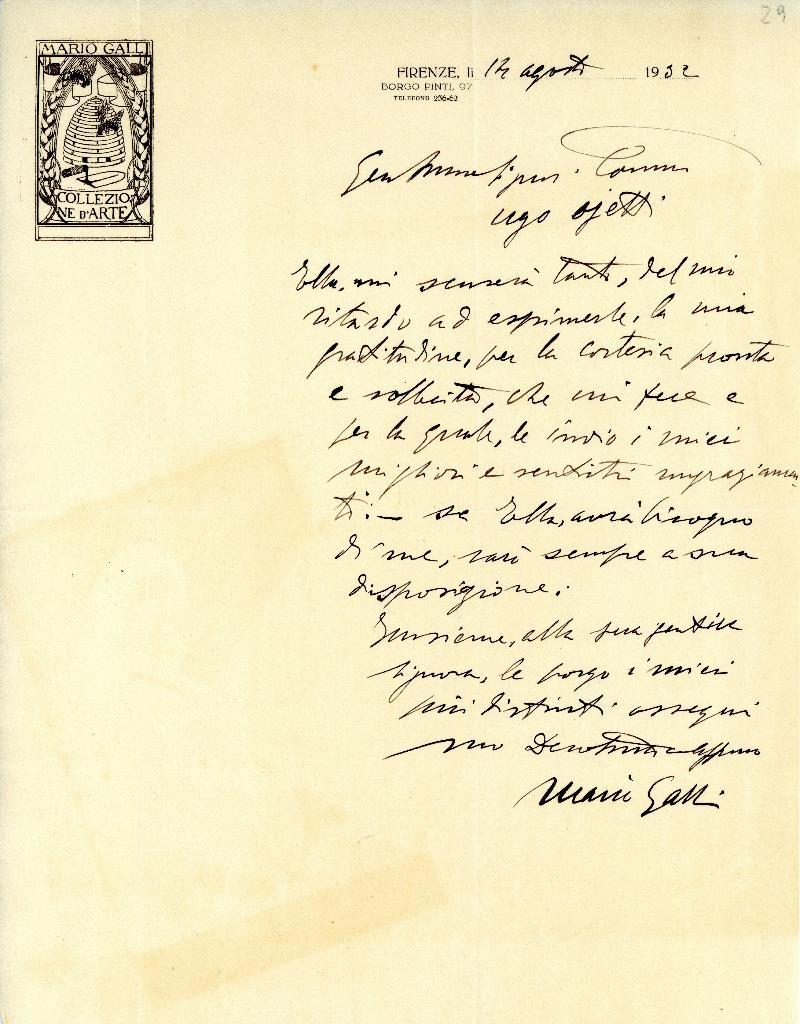 29
MARIO GALLI
COLLEZIO
NE D'ARTE
FIRENZE, li 14 agosto 1932
BORGO PINTI, 97
TELEFONO 256-62
Gentilissimo Signor Comm.
Ugo Ojetti
Ella, mi scuserà tanto, del mio
ritardo ad esprimerle, la mia
gratitudine, per la cortesia pronta
e sollecita, che mi fece e
per la quale, le invio i miei
migliori e sentiti ringraziamen-
ti. - se Ella, avrà bisogno
di me, sarò sempre a sua
disposizione.
Insieme, alla sua gentile
signora, le porgo i miei
più distinti ossequi
suo Devotissimo
Mario Galli